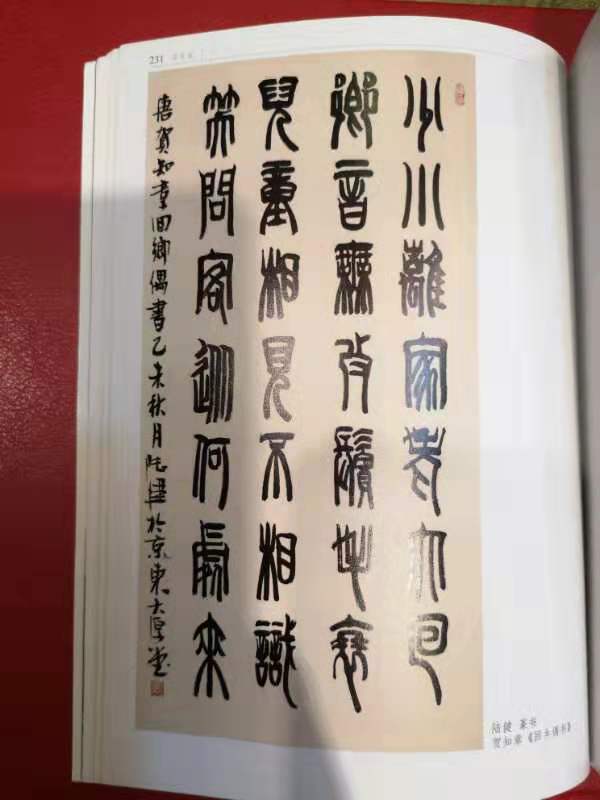 231
少小離家老大回
鄉音無改鬢毛衰
兒童相見不相識
笑問客從何處來
唐賀知章回鄉偶書乙未秋月陆健於京東大厚堂
陆健 篆书
贺知章《回乡偶书》